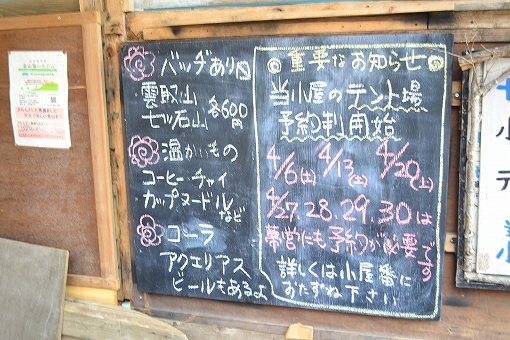 バッヂあり〼
雲取山
七ツ石山 各600円
温かいもの
コーヒー チャイ
カップヌードルなど
コーラ
アクエリアス
ビールもあるよ
重要なお知らせ
当小屋のテント場
予約制開始
4/6(土) 4/13(土) 4/20(土)
4/27.28.29.30は
幕営にも予約が必要です
詳しくは小屋番に
おたずね下さい